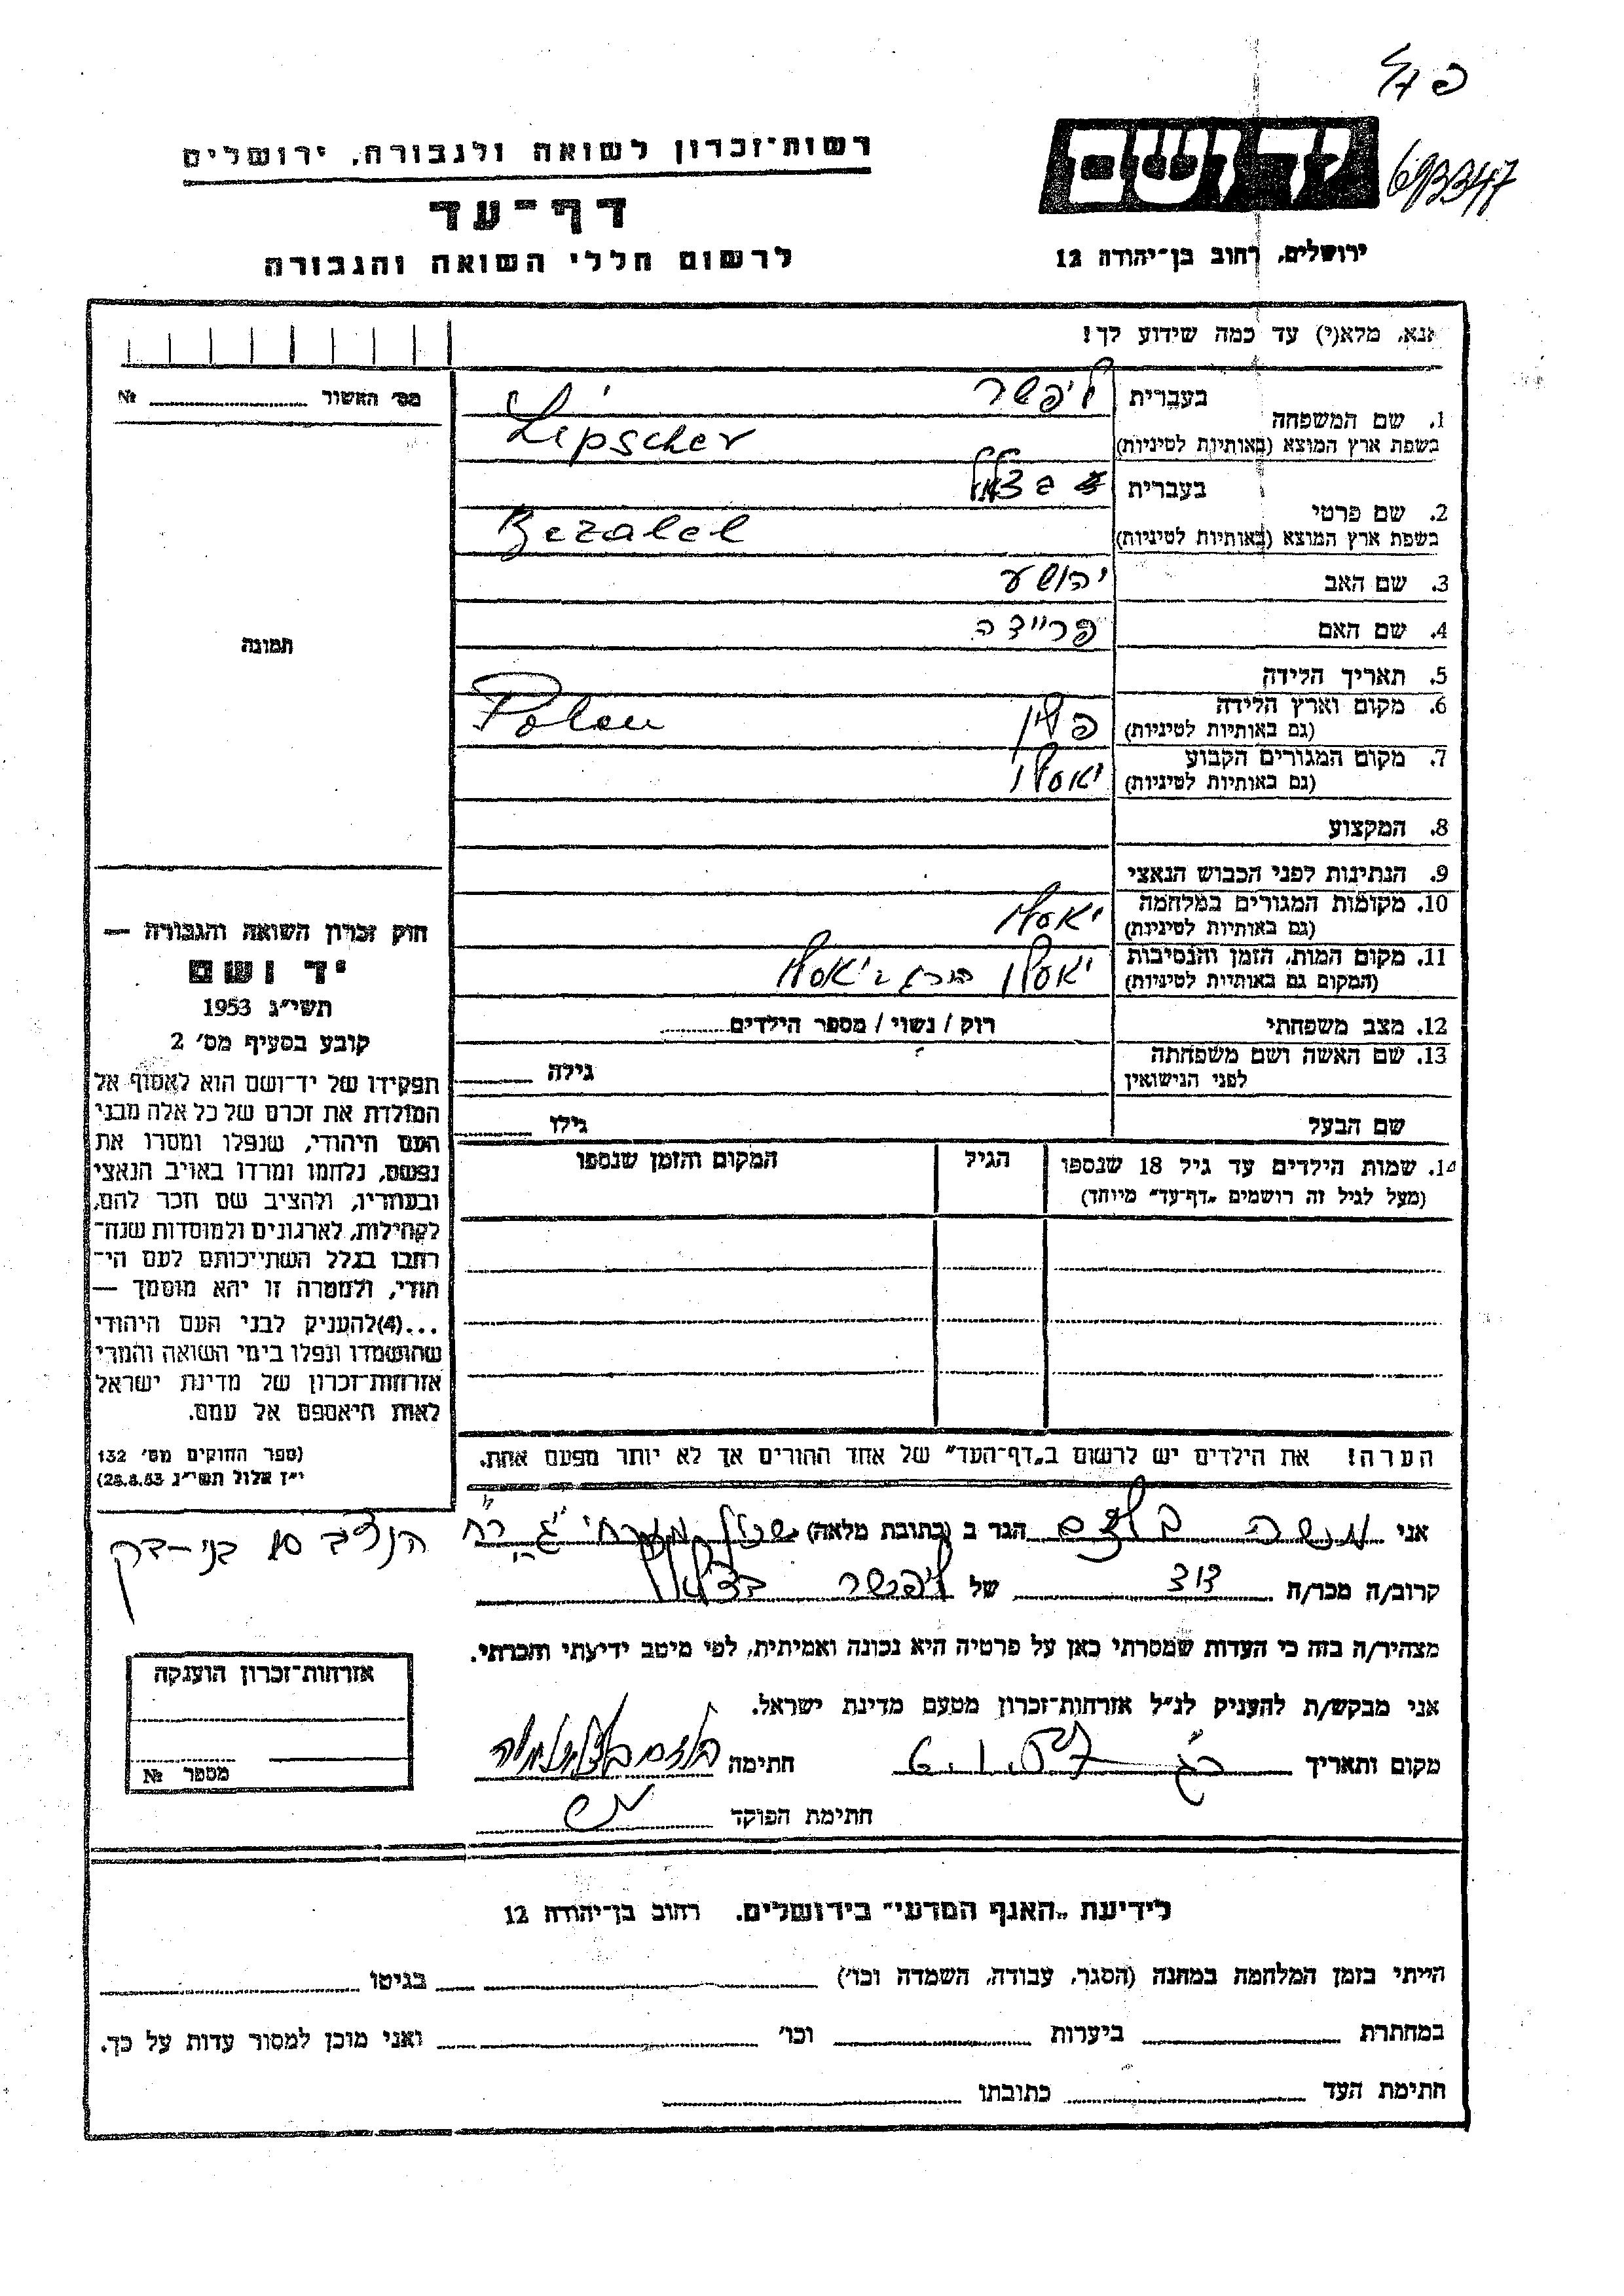 693347
יד ושם
רשות־זכרון לשואה ולגבורה, ירושלים
דף־עד
לרשום חללי השואה והגבורה
ירושלים, רחוב בן־יהודה 12
אנא, מלא(י) עד כמה שידוע לך!
מס׳ האשור № 
1. שם המשפחה
בעברית ליפשר
בשפת ארץ המוצא (באותיות לטיניות) Lipscher
2. שם פרטי
בעברית בצלאל
בשפת ארץ המוצא (באותיות לטיניות) Bezalel
3. שם האב יהושע
4. שם האם פריידה
5. תאריך הלידה
6. מקום וארץ הלידה (גם באותיות לטיניות) פולין Polen
7. מקום המגורים הקבוע (גם באותיות לטיניות) יאסלו
8. המקצוע
9. הנתינות לפני הכבוש הנאצי
10. מקומות המגורים במלחמה (גם באותיות לטיניות) יאסלו
11. מקום המות, הזמן והנסיבות (המקום גם באותיות לטיניות) יאסלו הורג ביאסלו
12. מצב משפחתי רוק / נשוי / מספר הילדים
13. שם האשה ושם משפחתה לפני הנישואין גילה
שם הבעל גילו
14. שמות הילדים עד גיל 18 שנספו (מעל לגיל זה רושמים „דף־עד״ מיוחד)
הגיל
המקום והזמן שנספו
הערה! את הילדים יש לרשום ב„דף־העד״ של אחד ההורים אך לא יותר מפעם אחת.
תמונה
חוק זכרון השואה והגבורה —
יד ושם
תשי״ג 1953
קובע בסעיף מס׳ 2
תפקידו של יד־ושם הוא לאסוף אל
המולדת את זכרם של כל אלה מבני
העם היהודי, שנפלו ומסרו את
נפשם, נלחמו ומרדו באויב הנאצי
ובעוזריו, ולהציב שם וזכר להם,
לקהילות, לארגונים ולמוסדות שנח־
רבו בגלל השתייכותם לעם הי־
הודי, ולמטרה זו יהא מוסמך —
...(4)להעניק לבני העם היהודי
שהושמדו ונפלו בימי השואה והמרי
אזרחות־זכרון של מדינת ישראל
לאות היאספם אל עמם.
(ספר החוקים מס׳ 132
י״ז אלול תשי״ג 28.8.53)
אני משה הגר ב (כתובת מלאה) שכון מזרחי ג׳ רח׳
הנצי״ב 10 בני-ברק
קרוב/ה מכר/ה דוד של ליפשר בצלאל
מצהיר/ה בזה כי העדות שמסרתי כאן על פרטיה היא נכונה ואמיתית, לפי מיטב ידיעתי והכרתי.
אני מבקש/ת להעניק לנ״ל אזרחות־זכרון מטעם מדינת ישראל.
מקום ותאריך
חתימה
חתימת הפוקד
אזרחות־זכרון הוענקה
מספר №
לידיעת „האגף המדעי״ בירושלים, רחוב בן־יהודה 12
הייתי בזמן המלחמה במחנה (הסגר, עבודה, השמדה וכו׳) בגיטו
במחתרת ביערות וכו׳ ואני מוכן למסור עדות על כך.
חתימת העד כתובתו